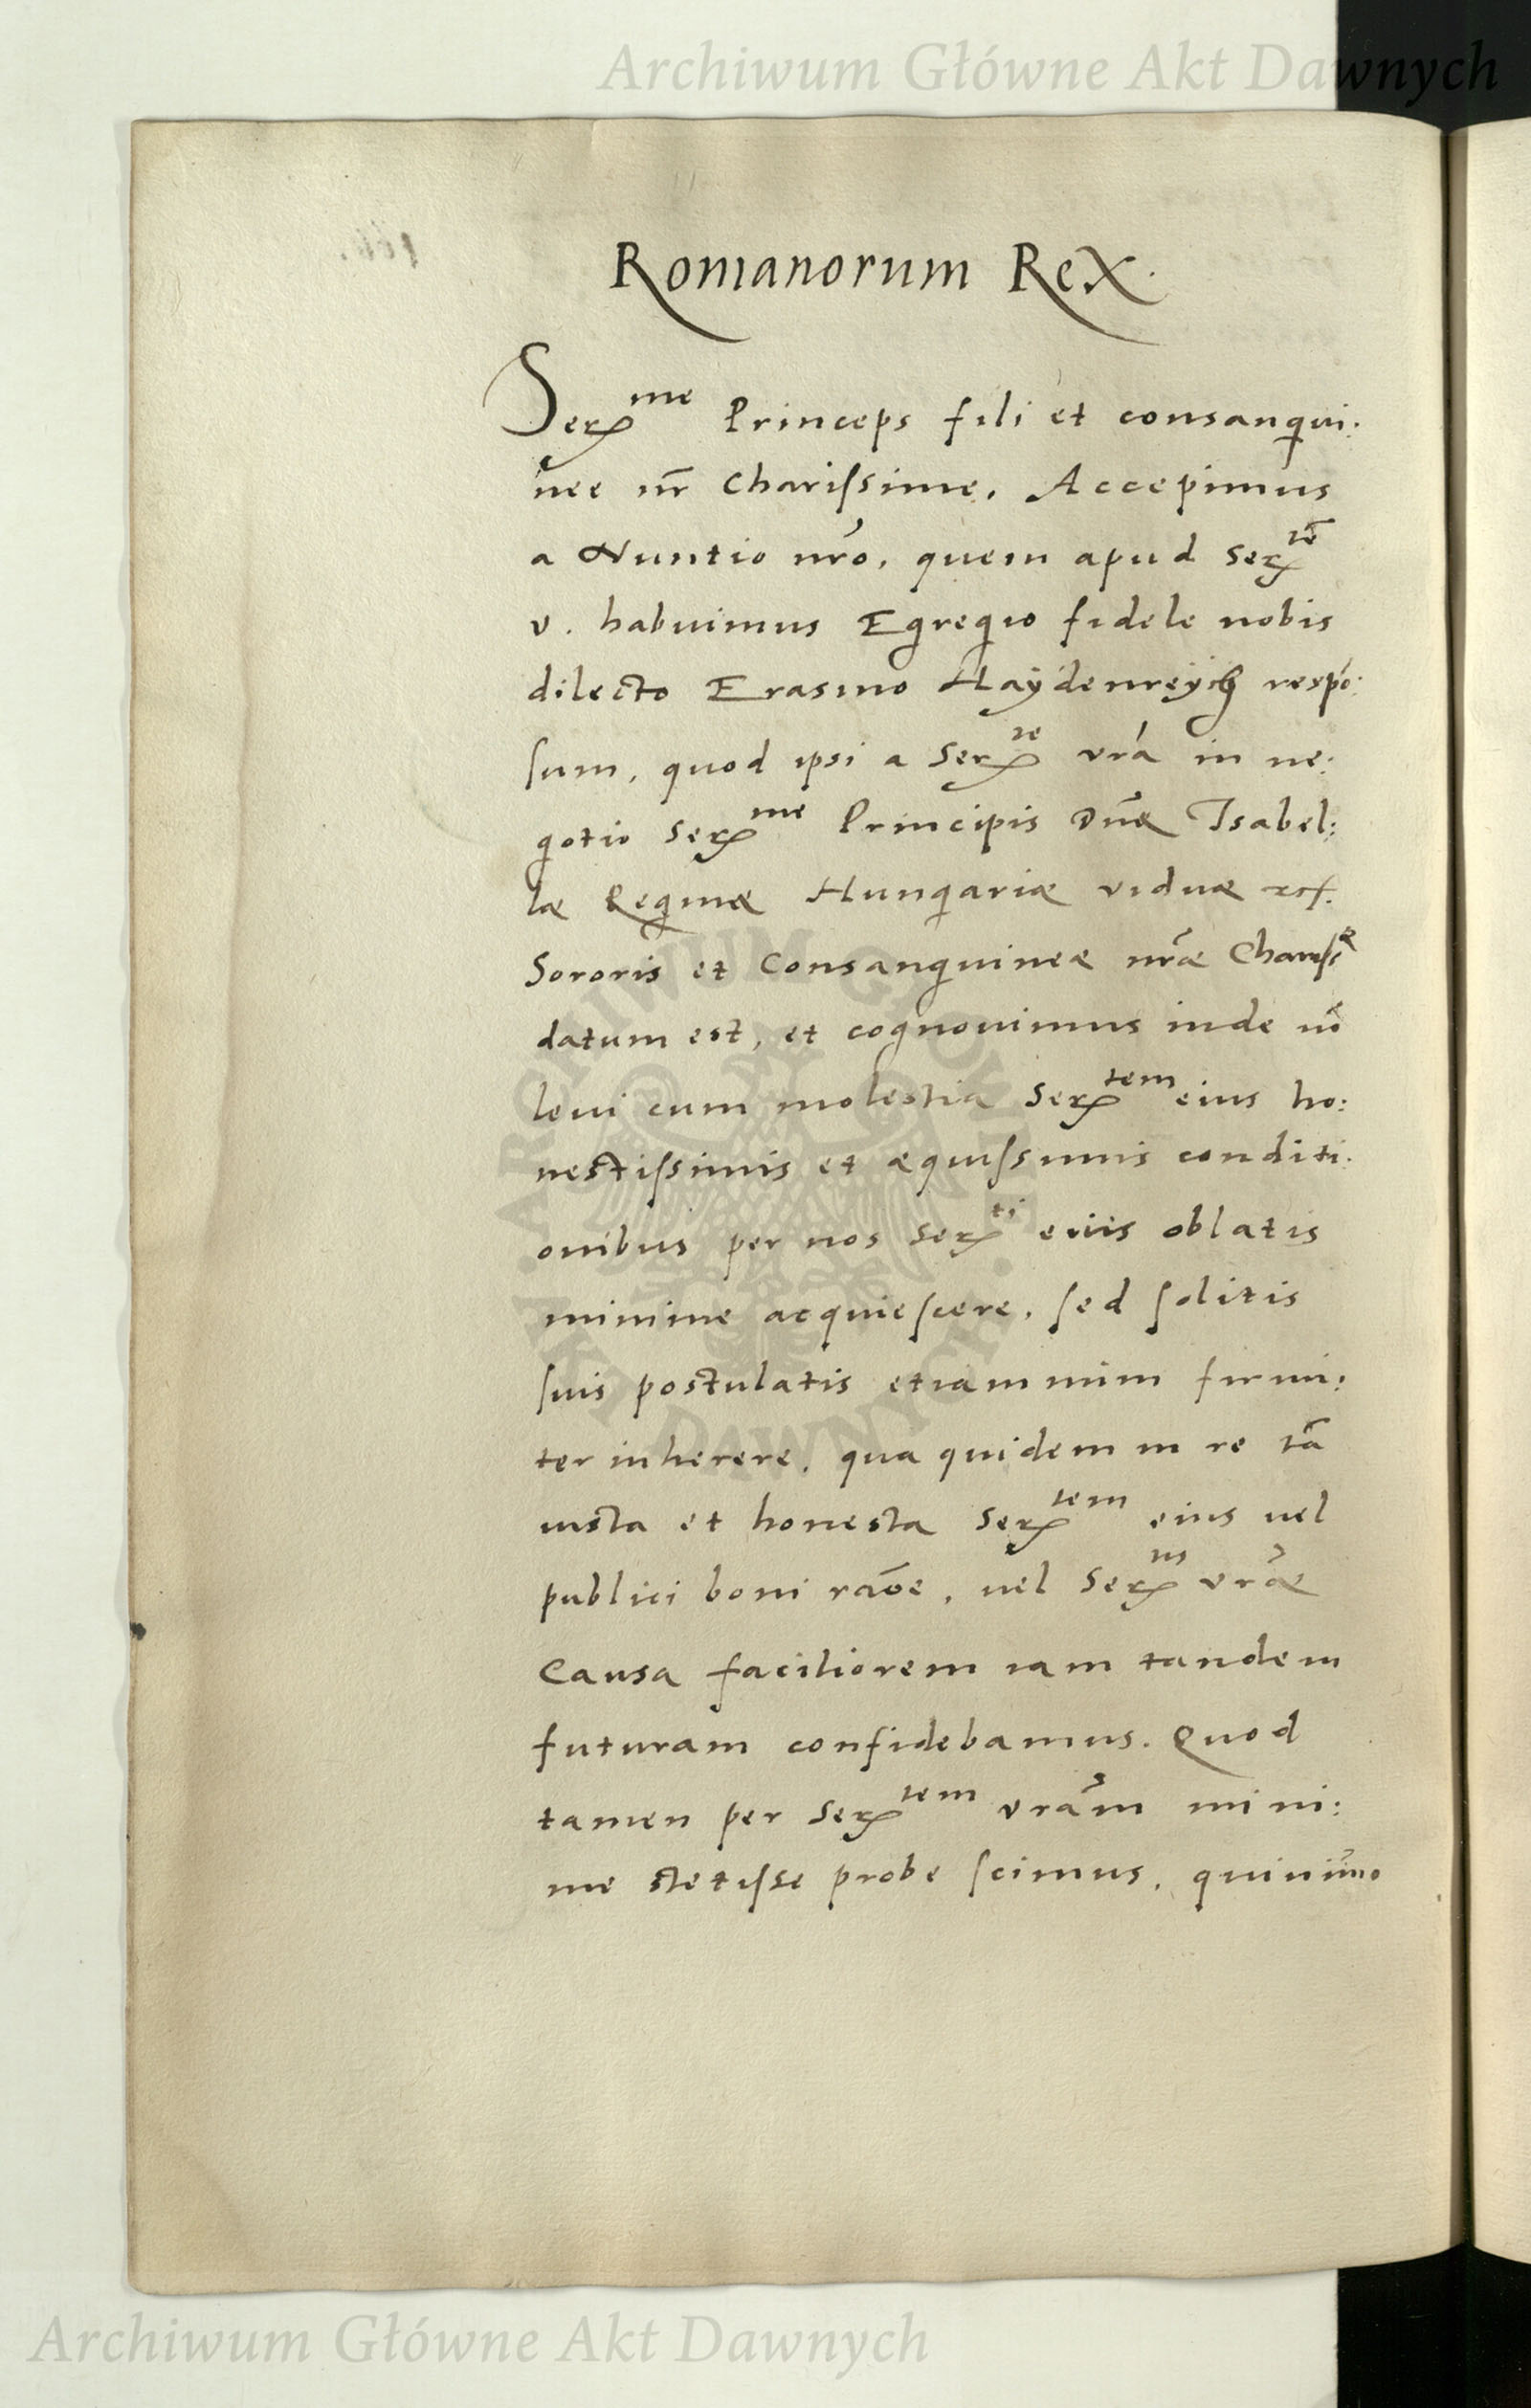 Archiwum Główne Akt Dawnych
Romanorum Rex.
Ser^me Princeps fili et consangui:
nee nr̄ Charissime, Accepimus
a Nuntio nr̄o, quem apud Ser^tē
v. habuimus Egregio fidele nobis
dilecto Erasmo Haÿdenreÿch respō:
sum, quod ipsi a Ser^te vr̄a in ne:
gotio Ser^me Principis Dn̄æ Isabel:
læ Reginæ Hungariæ viduæ etc.
Sororis et Consanguineæ nr̄æ Chariss^æ
datum est, et cognouimus inde nō
leui cum molestia Ser^tem eius ho:
nestissimis et æquissimis conditi:
onibus per nos Ser^ti eius oblatis
minime acquiescere, sed solitis
suis postulatis etiamnum firmi:
ter inherere, qua quidem in re tā
iusta et honesta Ser^tem eius vel
publici boni raōe, vel Ser^tis vr̄æ
Causa faciliorem iam tandem
futuram confidebamus. Quod
tamen per Ser^tem vr̄am mini:
me stetisse probe scimus, quinimmo
ARCHIWUM GŁÓWNE AKT DAWNYCH
Archiwum Główne Akt Dawnych